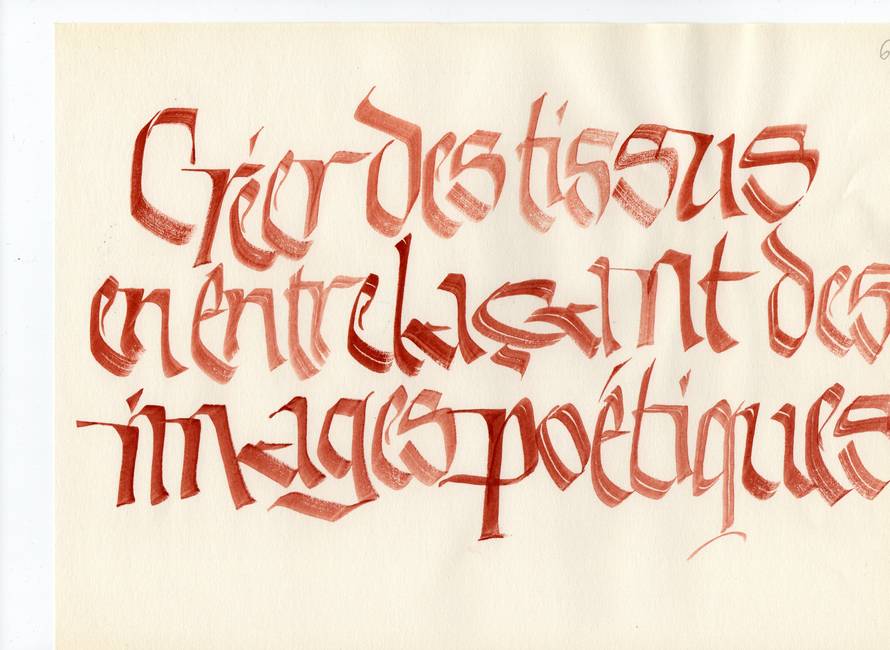 Créer des tissus
en entrelaçant des
images poétiques